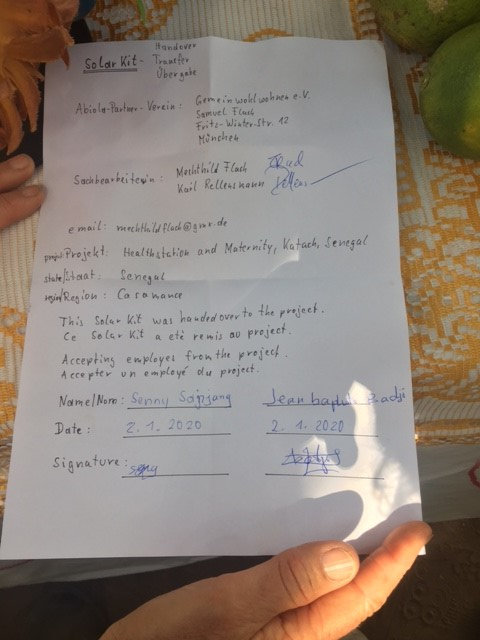 Solar Kit - Handover
Transfer
Übergabe
Abiola-Partner-Verein: Gemeinwohlwohnen e.V.
Samuel Flach
Fritz-Winter-Str. 12
München
Sachbearbeiterin: Mechthild Flach
Karl Rellensmann
email: mechthildflach@gmx.de
project Projekt: Healthstation and Maternity, Katach, Senegal
state/Staat: Senegal
region/Region: Casamance
This Solar Kit was handed over to the project.
Ce Solar Kit a eté remis au project.
Accepting employes from the project.
Accepter un employé du project.
Name/Nom: Senny Jean
Date: 2.1.2020 2.1.2020
Signature: